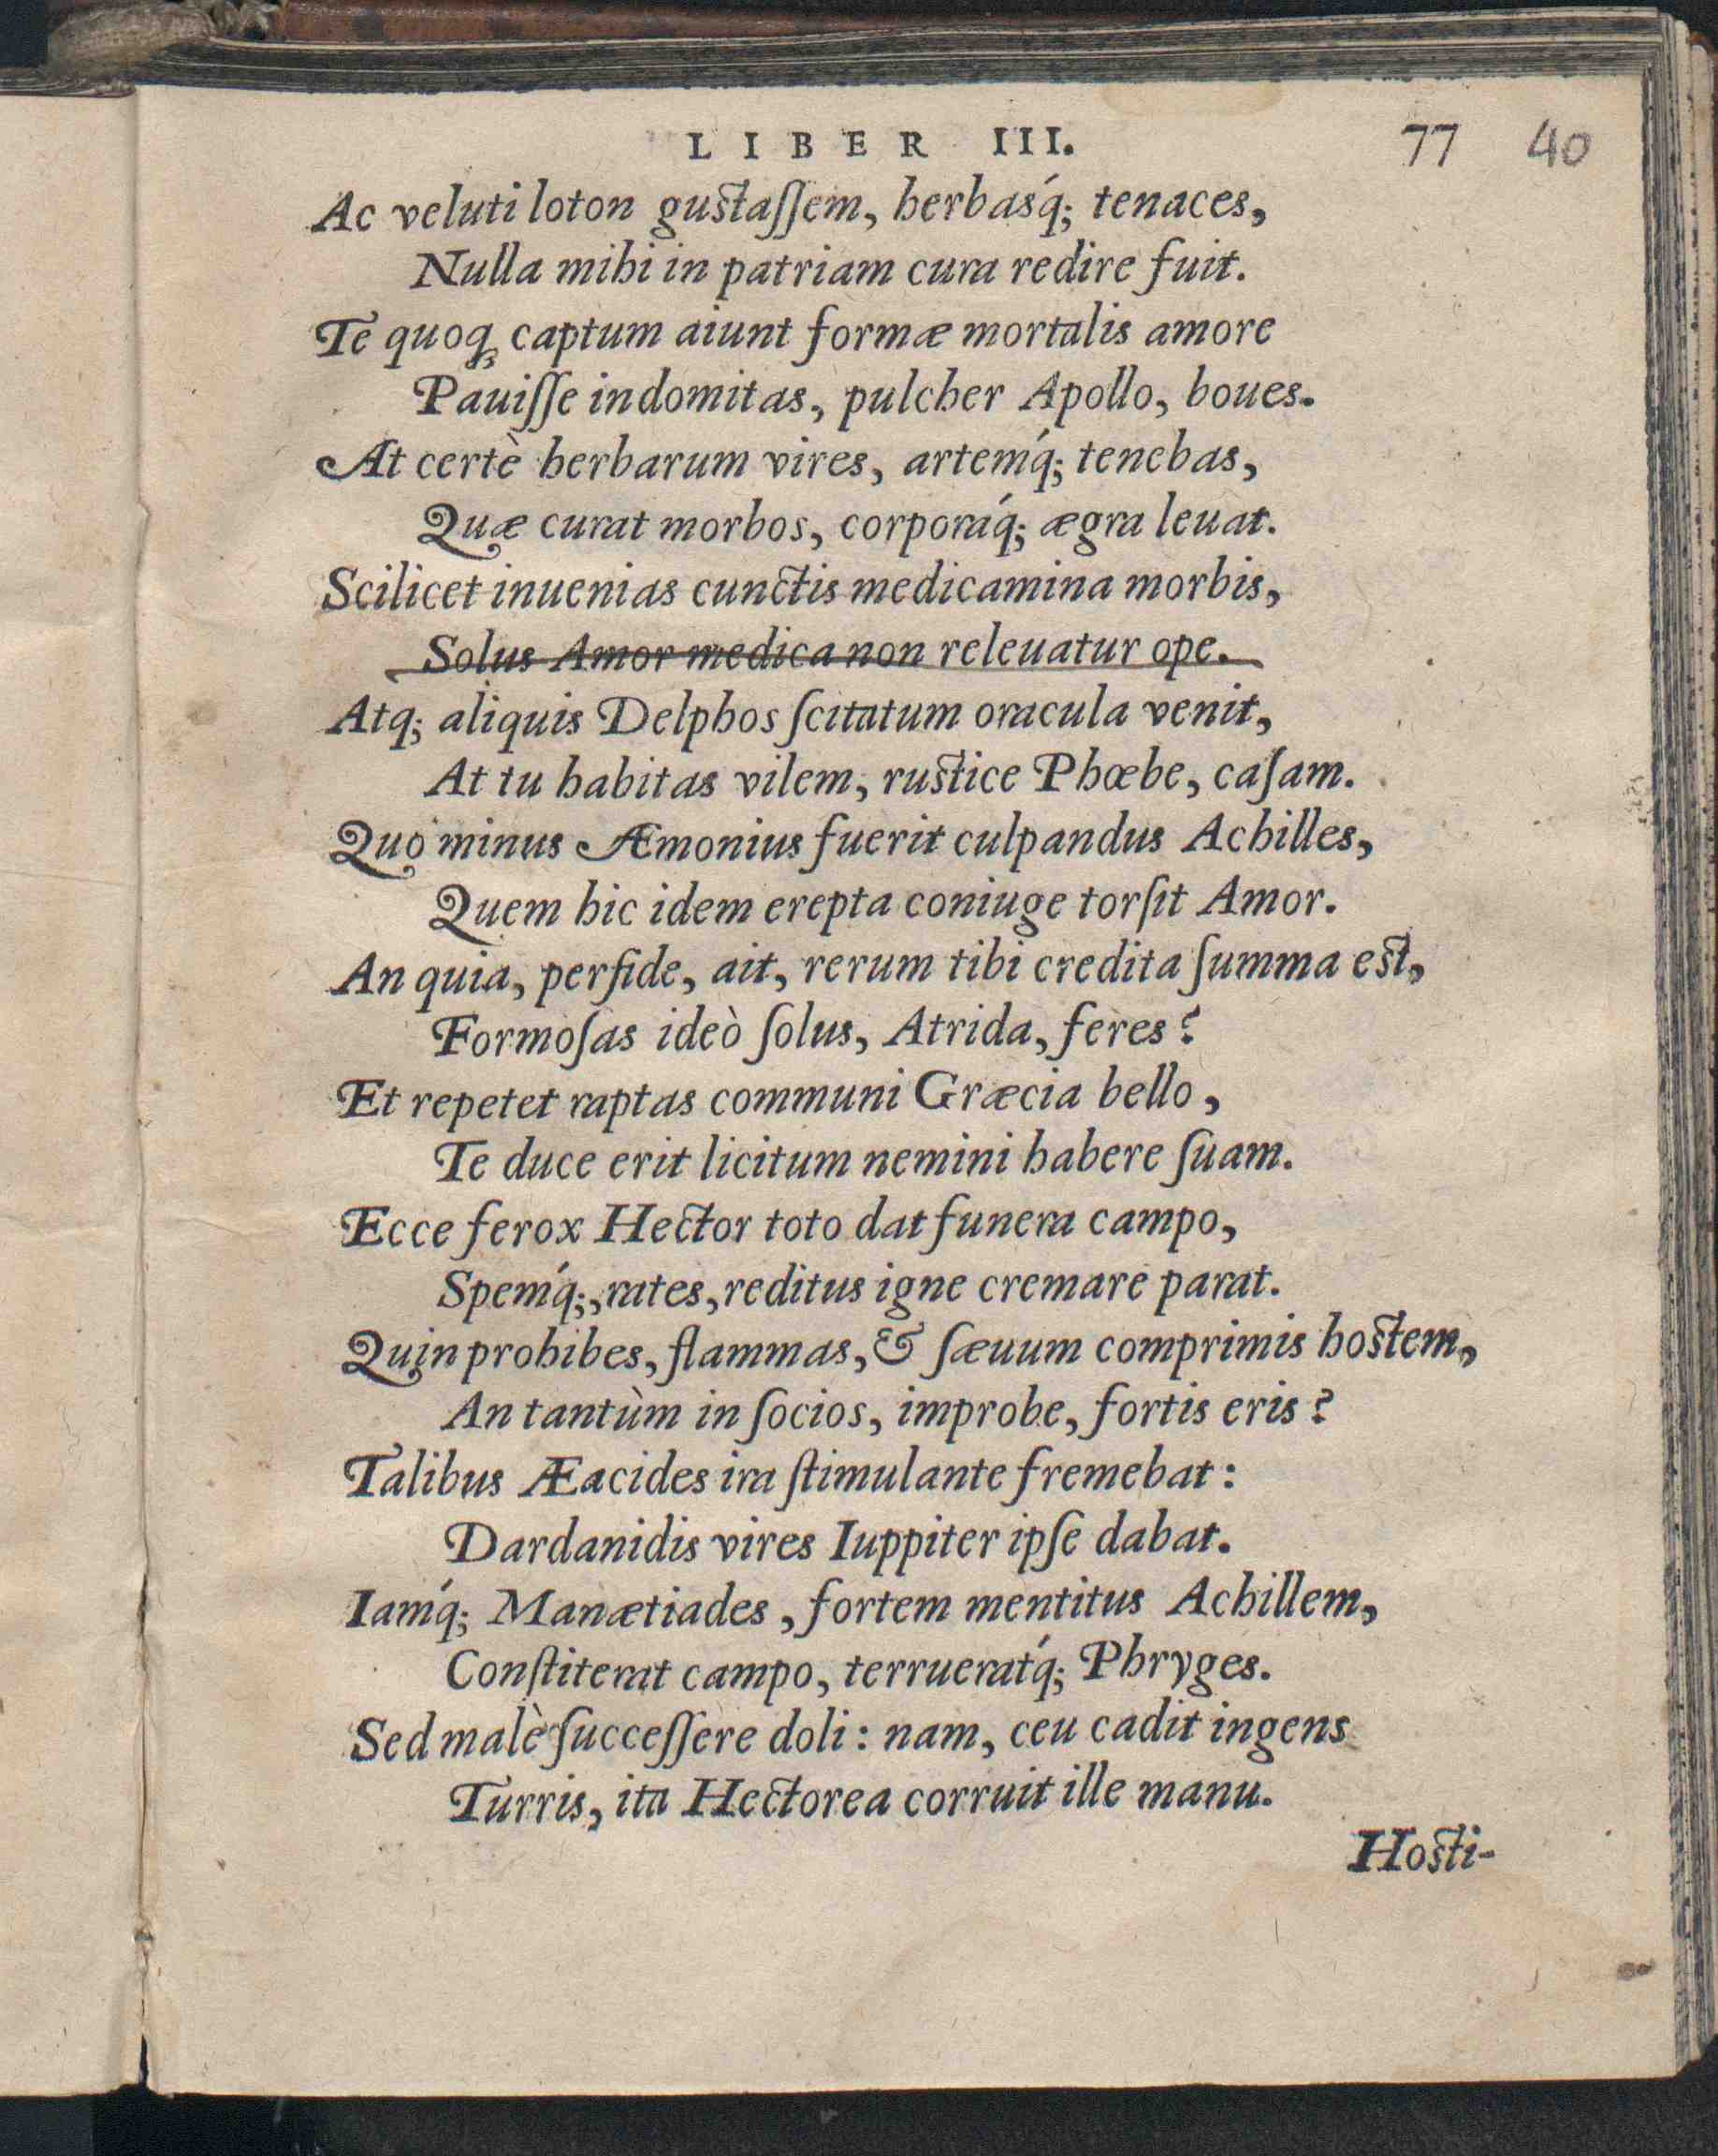 LIBER III. 77 40
Ac veluti loton gustaſſem, herbasq́; tenaces,
Nulla mihi in patriam cura redire fuit.
Te quoq; captum aiunt formæ mortalis amore
Pauiſſe indomitas, pulcher Apollo, boues.
At certè herbarum vires, artemq́; tenebas,
Quæ curat morbos, corporaq́; ægra leuat.
Scilicet inuenias cunctis medicamina morbis,
Solus Amor medica non releuatur ope.
Atq; aliquis Delphos ſcitatum oracula venit,
At tu habitas vilem, rustice Phœbe, caſam.
Quo minus Æmonius fuerit culpandus Achilles,
Quem hic idem erepta coniuge torſit Amor.
An quia, perfide, ait, rerum tibi credita ſumma est,
Formoſas ideò ſolus, Atrida, feres?
Et repetet raptas communi Græcia bello,
Te duce erit licitum nemini habere ſuam.
Ecce ferox Hector toto dat funera campo,
Spemq́;, rates, reditus igne cremare parat.
Quin prohibes, flammas, & ſæuum comprimis hostem,
An tantùm in ſocios, improbe, fortis eris?
Talibus Æacides ira ſtimulante fremebat:
Dardanidis vires Iuppiter ipſe dabat.
Iamq́; Manætiades, fortem mentitus Achillem,
Conſtiterat campo, terrueratq́; Phryges.
Sed malè ſucceſſere doli: nam, ceu cadit ingens
Turris, ita Hectorea corruit ille manu.
Hosti-